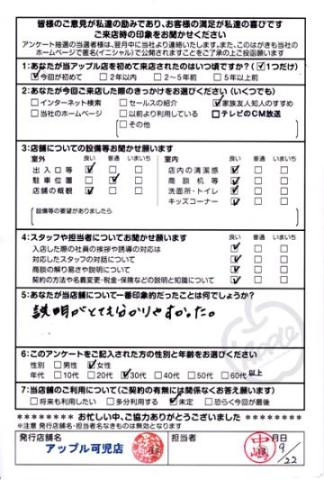 皆様のご意見が私達の励みであり、お客様の満足が私達の喜びです
ご来店時の印象をお聞かせください
アンケート抽選の当選者様は、翌月中に当社より連絡いたします。また、このはがきも当社の
ホームページで匿名(イニシャル)で公開されますことをご了承の上ご投函願います
1:あなたが当アップル店を初めて来店されたのはいつ頃ですか?(☑1つだけ)
☑今回が初めて □2年以内 □2~5年前 □5年以上前
2:あなたが今回ご来店した際のきっかけをお選びください(いくつでも)
□インターネット検索 □セールスの紹介 ☑家族友人知人のすすめ
□当社のホームページ □以前より利用している □テレビのCM放送
□その他
3:店舗についての設備等お聞かせ願います
室外 良い 普通 いまいち 室内 良い 普通 いまいち
出入口等 ☑ □ □ 店内の清潔感 ☑ □ □
駐車位置 □ ☑ □ 商談机等 ☑ □ □
店舗の概観 ☑ □ □ 洗面所・トイレ ☑ □ □
キッズコーナー ☑ □ □
設備等の要望がありましたら
4:スタッフや担当者についてお聞かせ願います 良い 普通 いまいち
入店した際の社員の挨拶や誘導の対応は ☑ □ □
対応したスタッフの対話について ☑ □ □
商談の解り易さや説明について ☑ □ □
契約の方法や名義変更・税金・保険などの説明と知識について ☑ □ □
5:あなたが当店舗について一番印象的だったことは何でしょうか?
説明がとてもわかりやすかった。
6:このアンケートをご記入された方の性別と年齢をお選びください
性別 □男性 ☑女性
年代 □10代 □20代 ☑30代 □40代 □50代 □60代以上
7:当店舗のご利用について(ご契約の有無には関係なくお答え願います)
□将来も利用したい □多分利用する ☑未定 □恐らく今回が最後
******** お忙しい中、ご協力ありがとうございました ********
※注意 発行店舗名・担当者名なきものは無効となります
発行店舗名 担当者 月日
アップル可児店 9/22